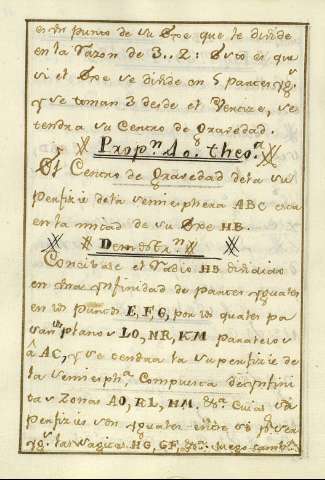 es un punto de su Exe que le divide
en la razon de 3..2: Esto es que
si el Exe se divide en 5 partes yg.s
y se toman 3 desde el Vertize, se
tendra su Centro de Gravedad.
Prop.n 40. theo.a
El Centro de Gravedad dela su
perfizie dela semiesphera ABC esta
en la mitad de su Exe HB.
Demostr.n
Concivase el Radio HB dividido
en una ynfinidad de partes yguales
en los puntos E, F, G, por los quales pa
san los planos LO, NR, KM paralelos
â AC, y se tendra la superfizie de
la semiesph.a Compuesta de ynfini
tas Zonas AO, RL, HM, &a. Cuias su
perfizies son yguales entre si
yg.s las HG, GF, &a. luego tamb.n